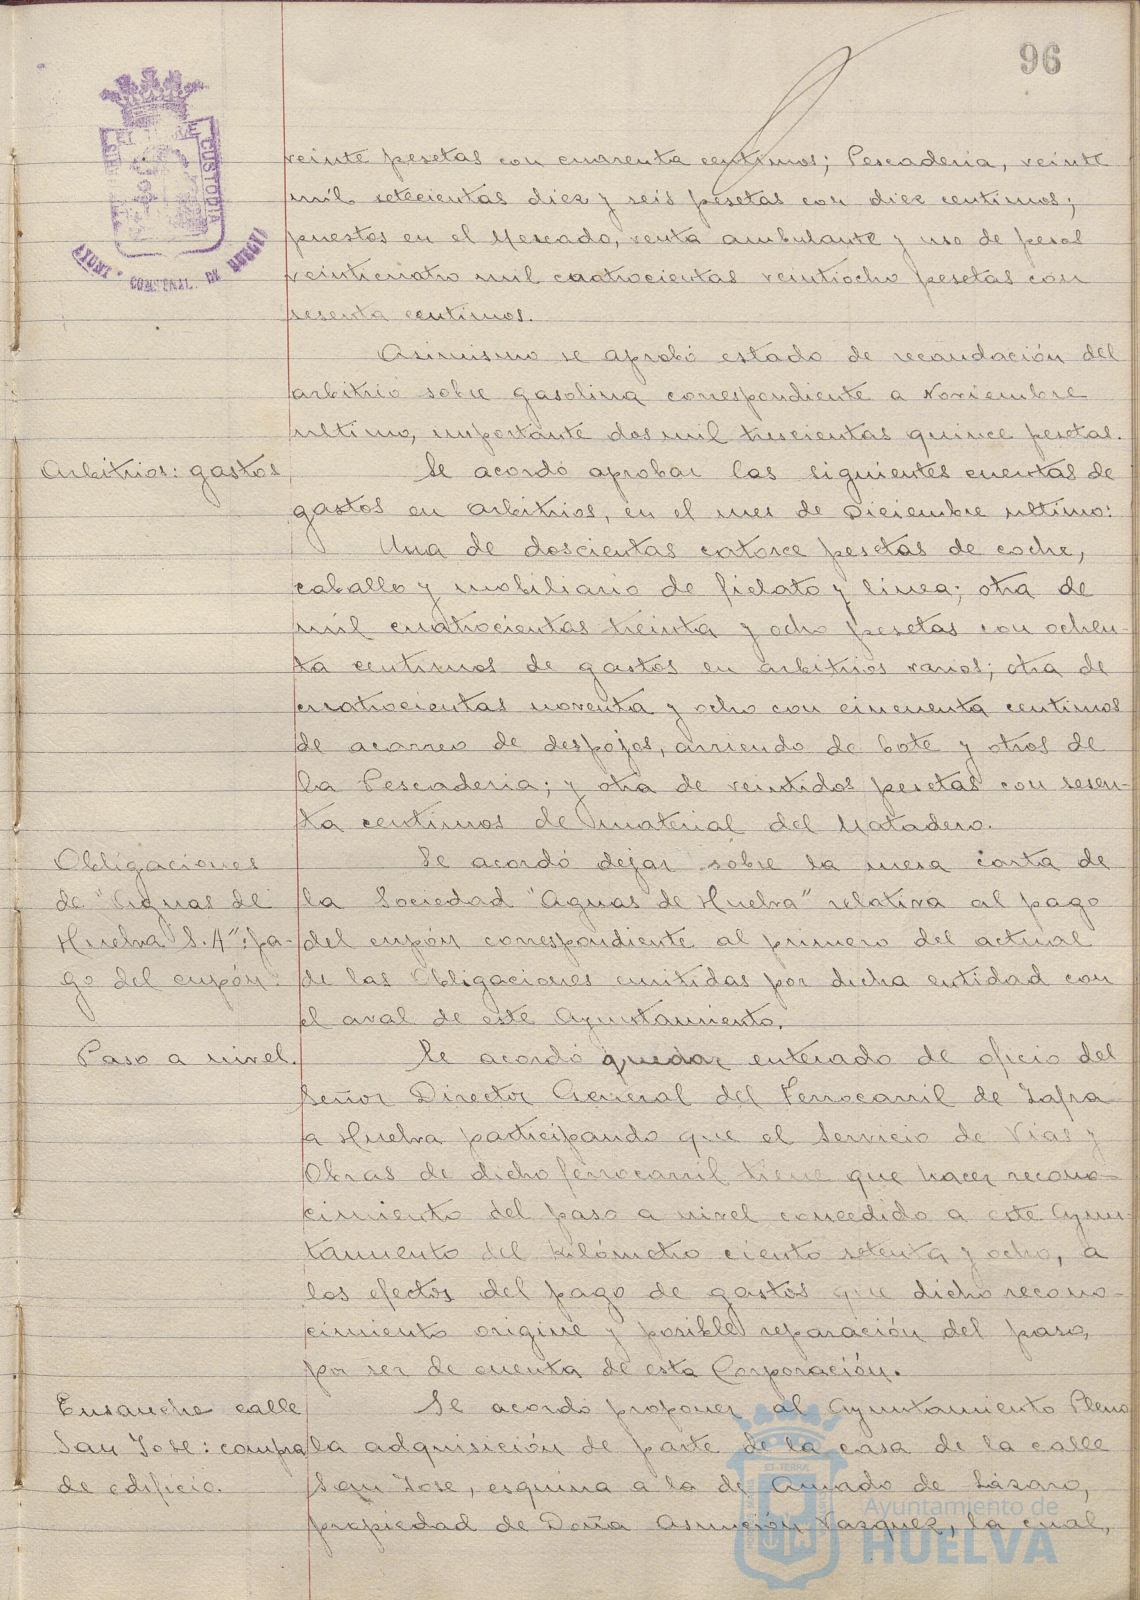 96
veinte pesetas con cuarenta centimos; Pescaderia, veinte
mil setecientas diez y seis pesetas con diez centimos;
puestos en el Mercado, venta ambulante y uso de pesos
veinticuatro mil cuatrocientas veintiocho pesetas con
sesenta centimos.
Asimismo se aprobó estado de recaudación del
arbitrio sobre gasolina correspondiente a Noviembre
ultimo, importante dos mil trescientas quince pesetas.
Arbitrios: gastos
Se acordó aprobar las siguientes cuentas de
gastos en arbitrios, en el mes de Diciembre ultimo:
Una de doscientas catorce pesetas de coche,
caballo y mobiliario de fielato y linea; otra de
mil cuatrocientas treinta y ocho pesetas con ochen-
ta centimos de gastos en arbitrios varios; otra de
cuatrocientas noventa y ocho con cincuenta centimos
de acarreo de despojos, arriendo de bote y otros de
la Pescaderia; y otra de veintidos pesetas con sesen-
ta centimos de material del Matadero.
Obligaciones
de "Aguas de
Huelva S.A": pa-
go del cupón.
Se acordó dejar sobre la mesa carta de
la Sociedad "Aguas de Huelva" relativa al pago
del cupón correspondiente al primero del actual
de las Obligaciones emitidas por dicha entidad con
el aval de este Ayuntamiento.
Paso a nivel.
Se acordó quedar enterado de oficio del
Señor Director General del Ferrocarril de Zafra
a Huelva participando que el Servicio de Vias y
Obras de dicho ferrocarril tiene que hacer recono-
cimiento del paso a nivel concedido a este Ayun-
tamiento del kilómetro ciento setenta y ocho, a
los efectos del pago de gastos que dicho recono-
cimiento origine y posible reparación del paso,
por ser de cuenta de esta Corporación.
Ensanche calle
San Jose: compra
de edificio.
Se acordo proponer al Ayuntamiento Pleno
la adquisición de parte de la casa de la calle
San Jose, esquina a la de Amado de Lázaro,
propiedad de Doña Asunción Vazquez, la cual,
Ayuntamiento de
HUELVA